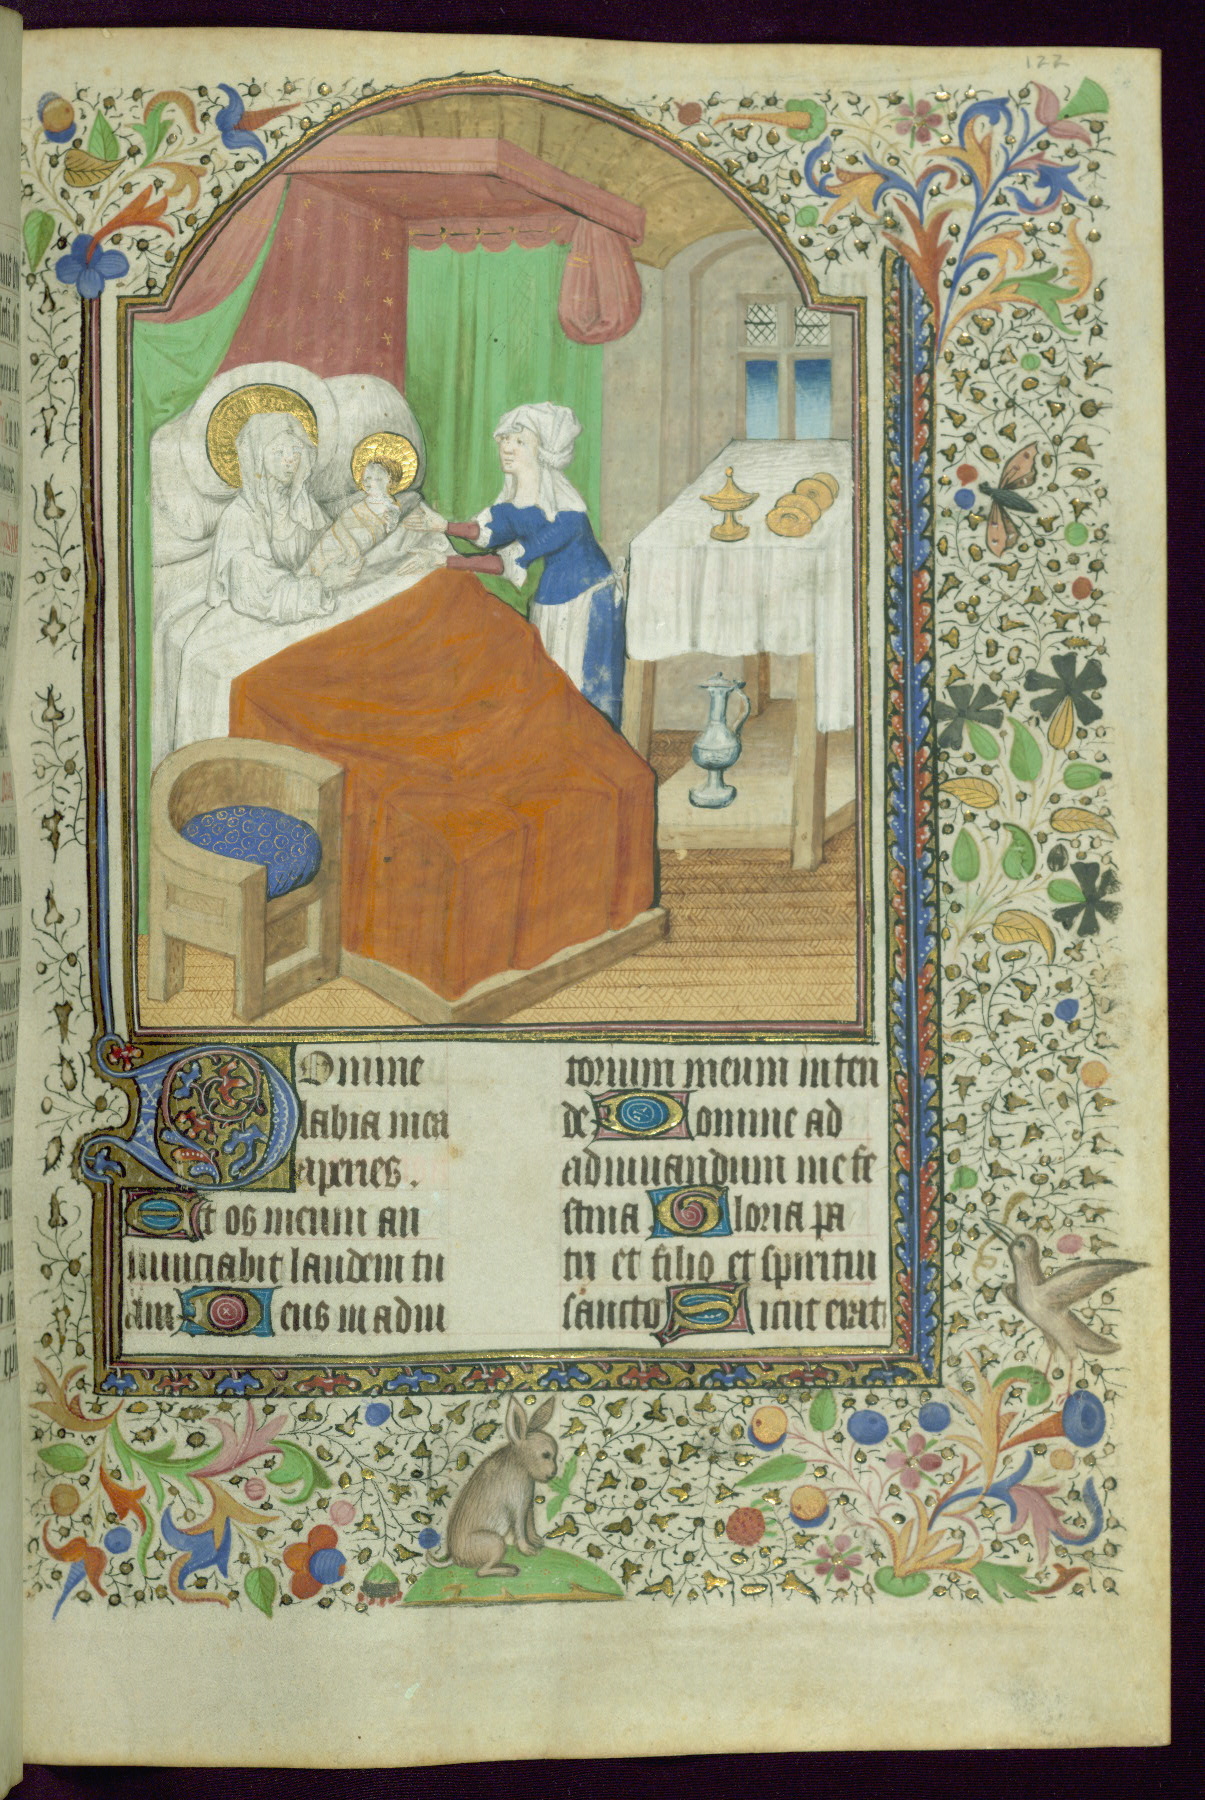 122
Domine
labia mea
aperies.
Et os meum an
nunciabit laudem tu
am Deus in adiu
torium meum inten
de Domine ad
adiuuandum me fe
stina Gloria pa
tri et filio et spiritui
sancto Sicut erat